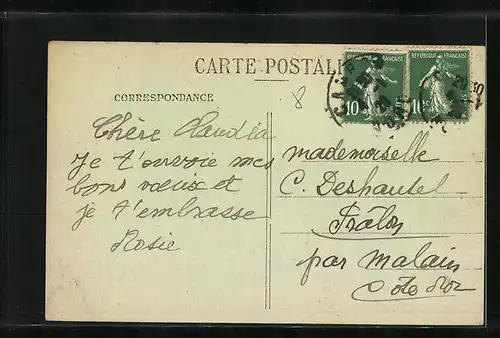 CARTE POSTALE
RÉPUBLIQUE FRANÇAISE
RÉPUBLIQUE FRANÇAISE
10
10
CORRESPONDANCE
8
Chère Claudia
Je t'envoie mes
bons vœux et
je t'embrasse
Rosie
mademoiselle
C. Deshautel
Prâlon
par Malain
Côte d'or